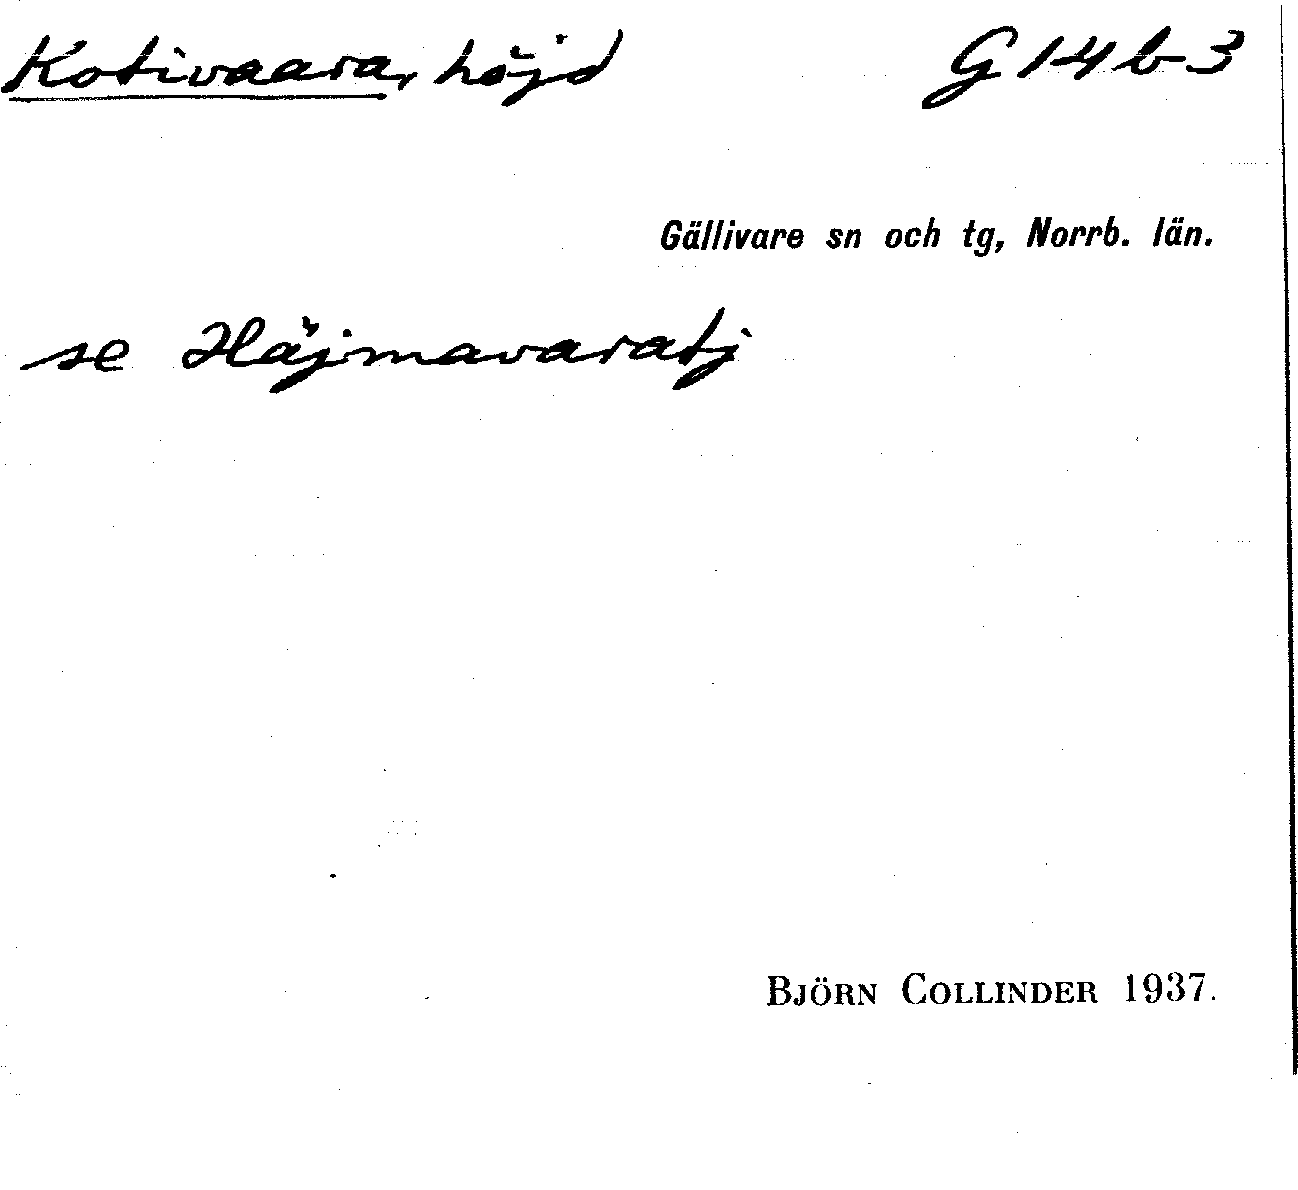 Kotivaara, höjd G 14 b 3
Gällivare sn och tg, Norrb. län.
se Häjmavaratj
BJÖRN COLLINDER 1937.